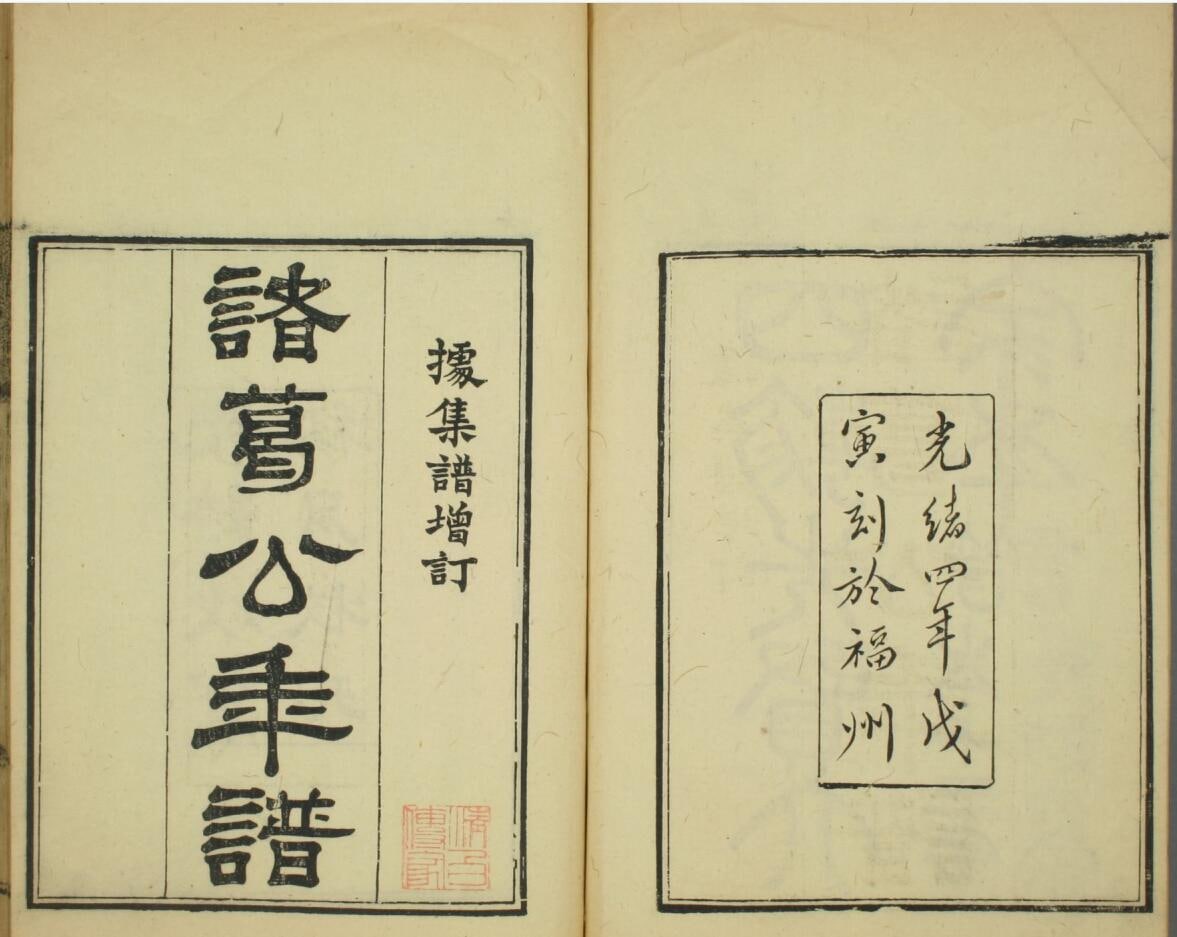 光緒四年戊
寅刻於福州
據集譜增訂
諸葛公年譜